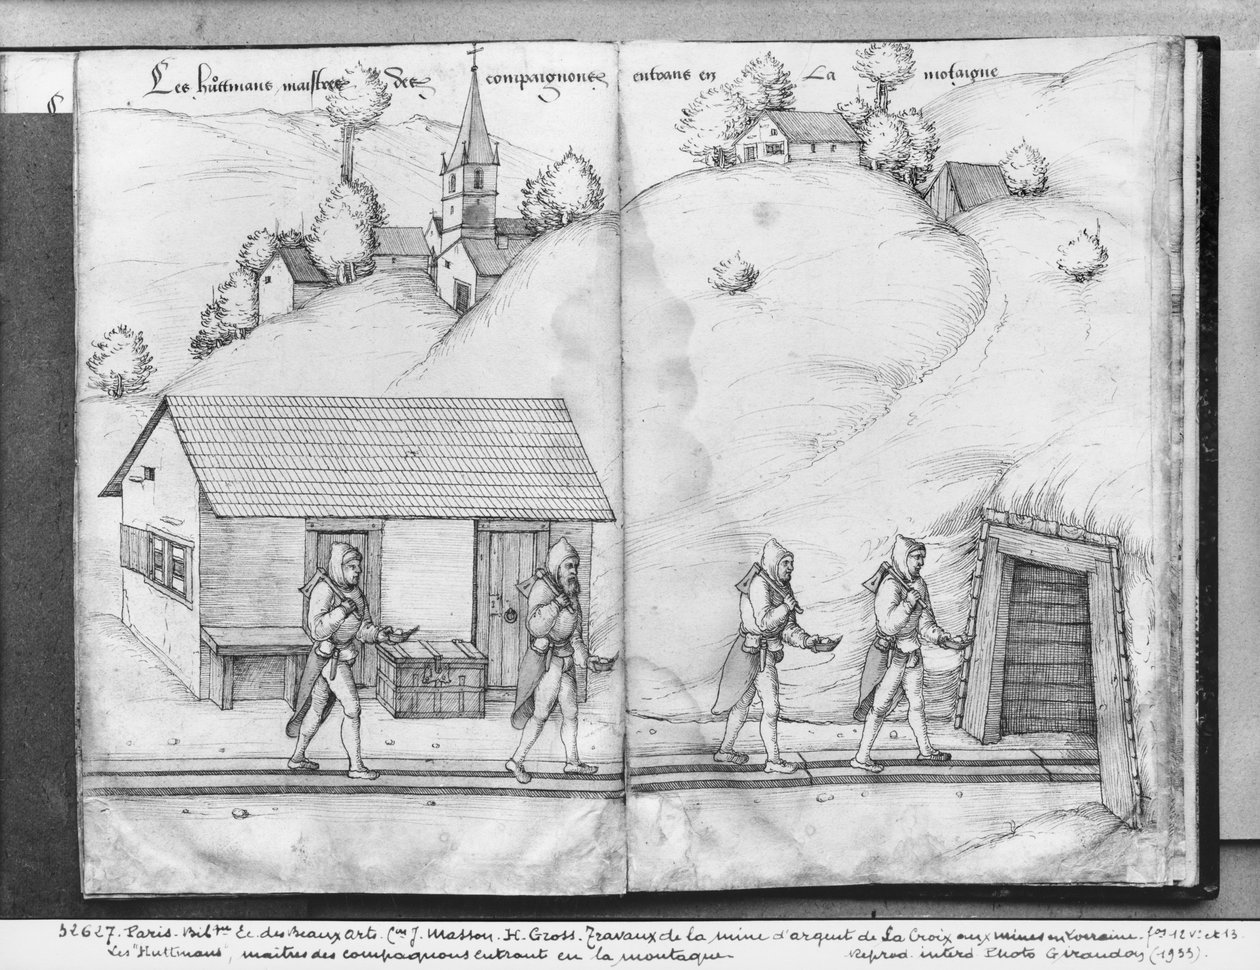 Les hůttmans maistres des compaignons entrans en La motaigne
32627. Paris. Bibque Ec. des Beaux arts. Con J. Masson. H. Gross. Travaux de la mine d'argent de La Croix aux mines en Lorraine. fos 12 vo et 13
Les "Huttmans", maîtres des compagnons entrant en la montagne
Reprod. interd Photo Giraudon (1933).